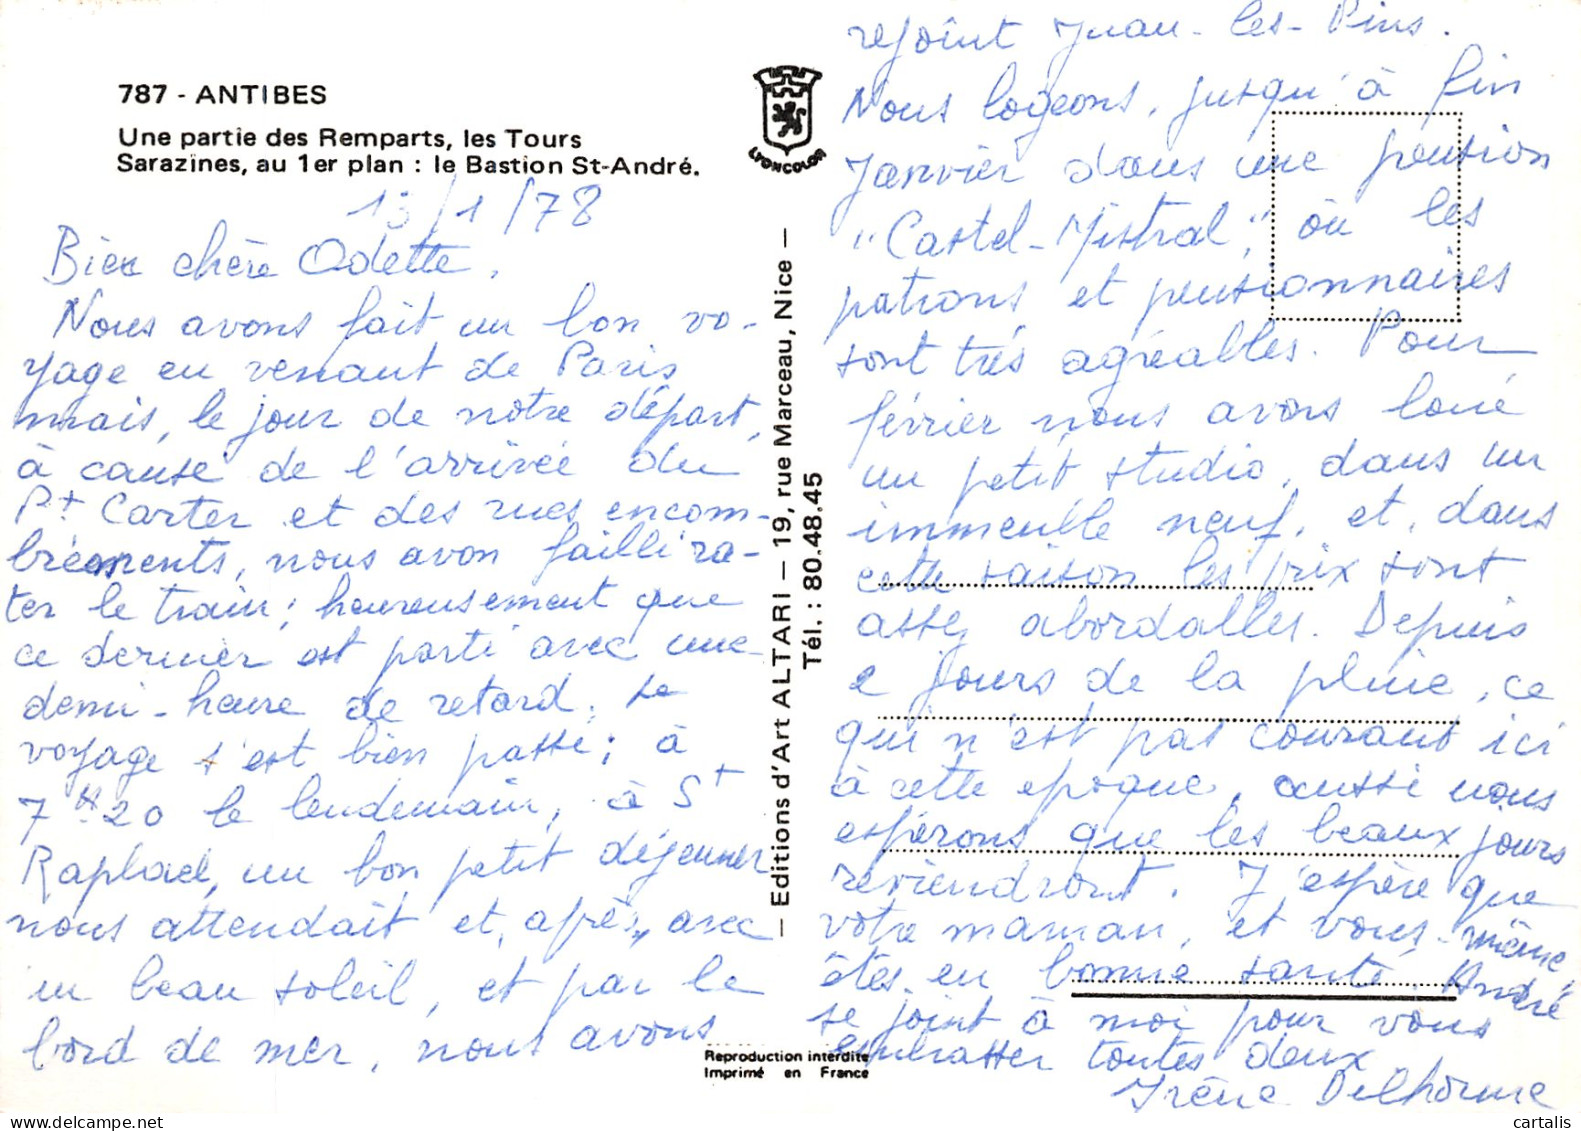 787 - ANTIBES
Une partie des Remparts, les Tours
Sarazines, au 1er plan : le Bastion St-André.
13/1/78
Bien chère Odette,
Nous avons fait un bon vo-
yage en venant de Paris
mais, le jour de notre départ,
à cause de l'arrivée du
Pt Carter et des rues encom-
bréements, nous avon failli ra-
ter le train; heureusement que
ce dernier est parti avec une
demi-heure de retard. Le
voyage s'est bien passé; à
7H20 le lendemain, à St
Raphael, un bon petit déjeuner
nous attendait et, après, avec
un beau soleil, et par le
bord de mer, nous avons
LYONCOLOR
— Editions d'Art ALTARI — 19, rue Marceau, Nice —
Tél. : 80.48.45
Reproduction interdite
Imprimé en France
rejoint Juan-les-Pins.
Nous logeons, jusqu'à fin
Janvier dans une pension
"Castel-Mistral", où les
patrons et pensionnaires
sont très agréables. Pour
février nous avons loué
un petit studio, dans un
immeuble neuf, et, dans
cette saison les prix sont
assez abordables. Depuis
2 jours de la pluie, ce
qui n'est pas courant ici
à cette epoque, aussi nous
espérons que les beaux jours
reviendront. J'espère que
votre maman, et vous-même,
êtes en bonne santé. André
se joint à moi pour vous
embrasser toutes deux
Irène Delhorme
cartalis